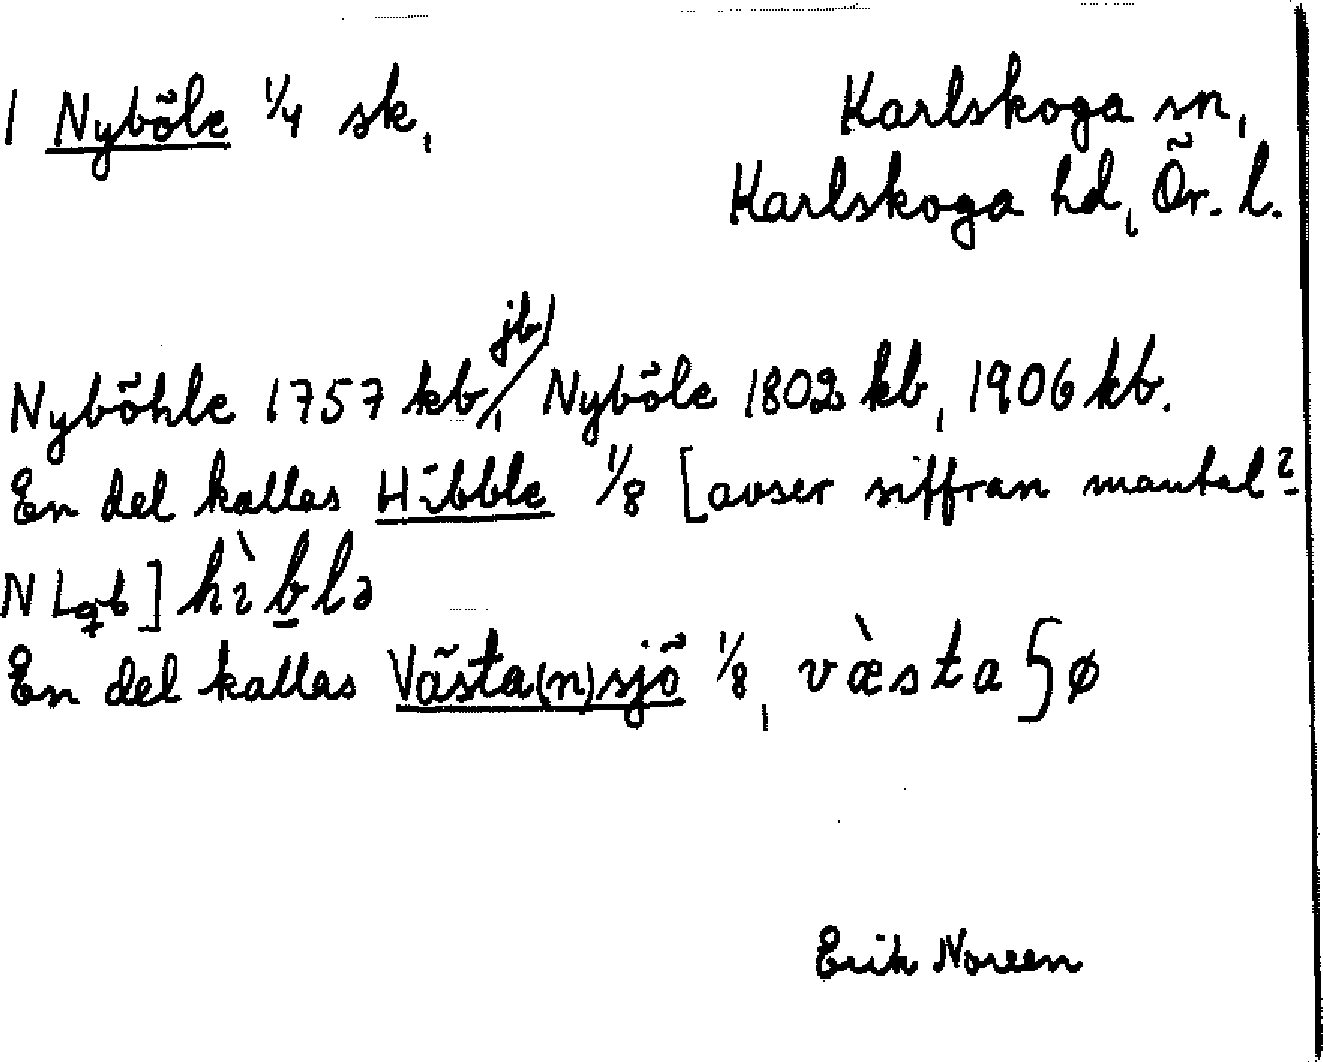 1 Nyböle 1/4 sk,
Karlskoga sn,
Karlskoga hd, Ör. l.
jb)
Nyböhle 1757 kb, Nyböle 1802 kb, 1906 kb.
En del kallas Hibble 1/8 [avser siffran mantal?
NLgb] hìblə
En del kallas Västa(n)sjö 1/8, væ̀staʃø
Erik Noreen